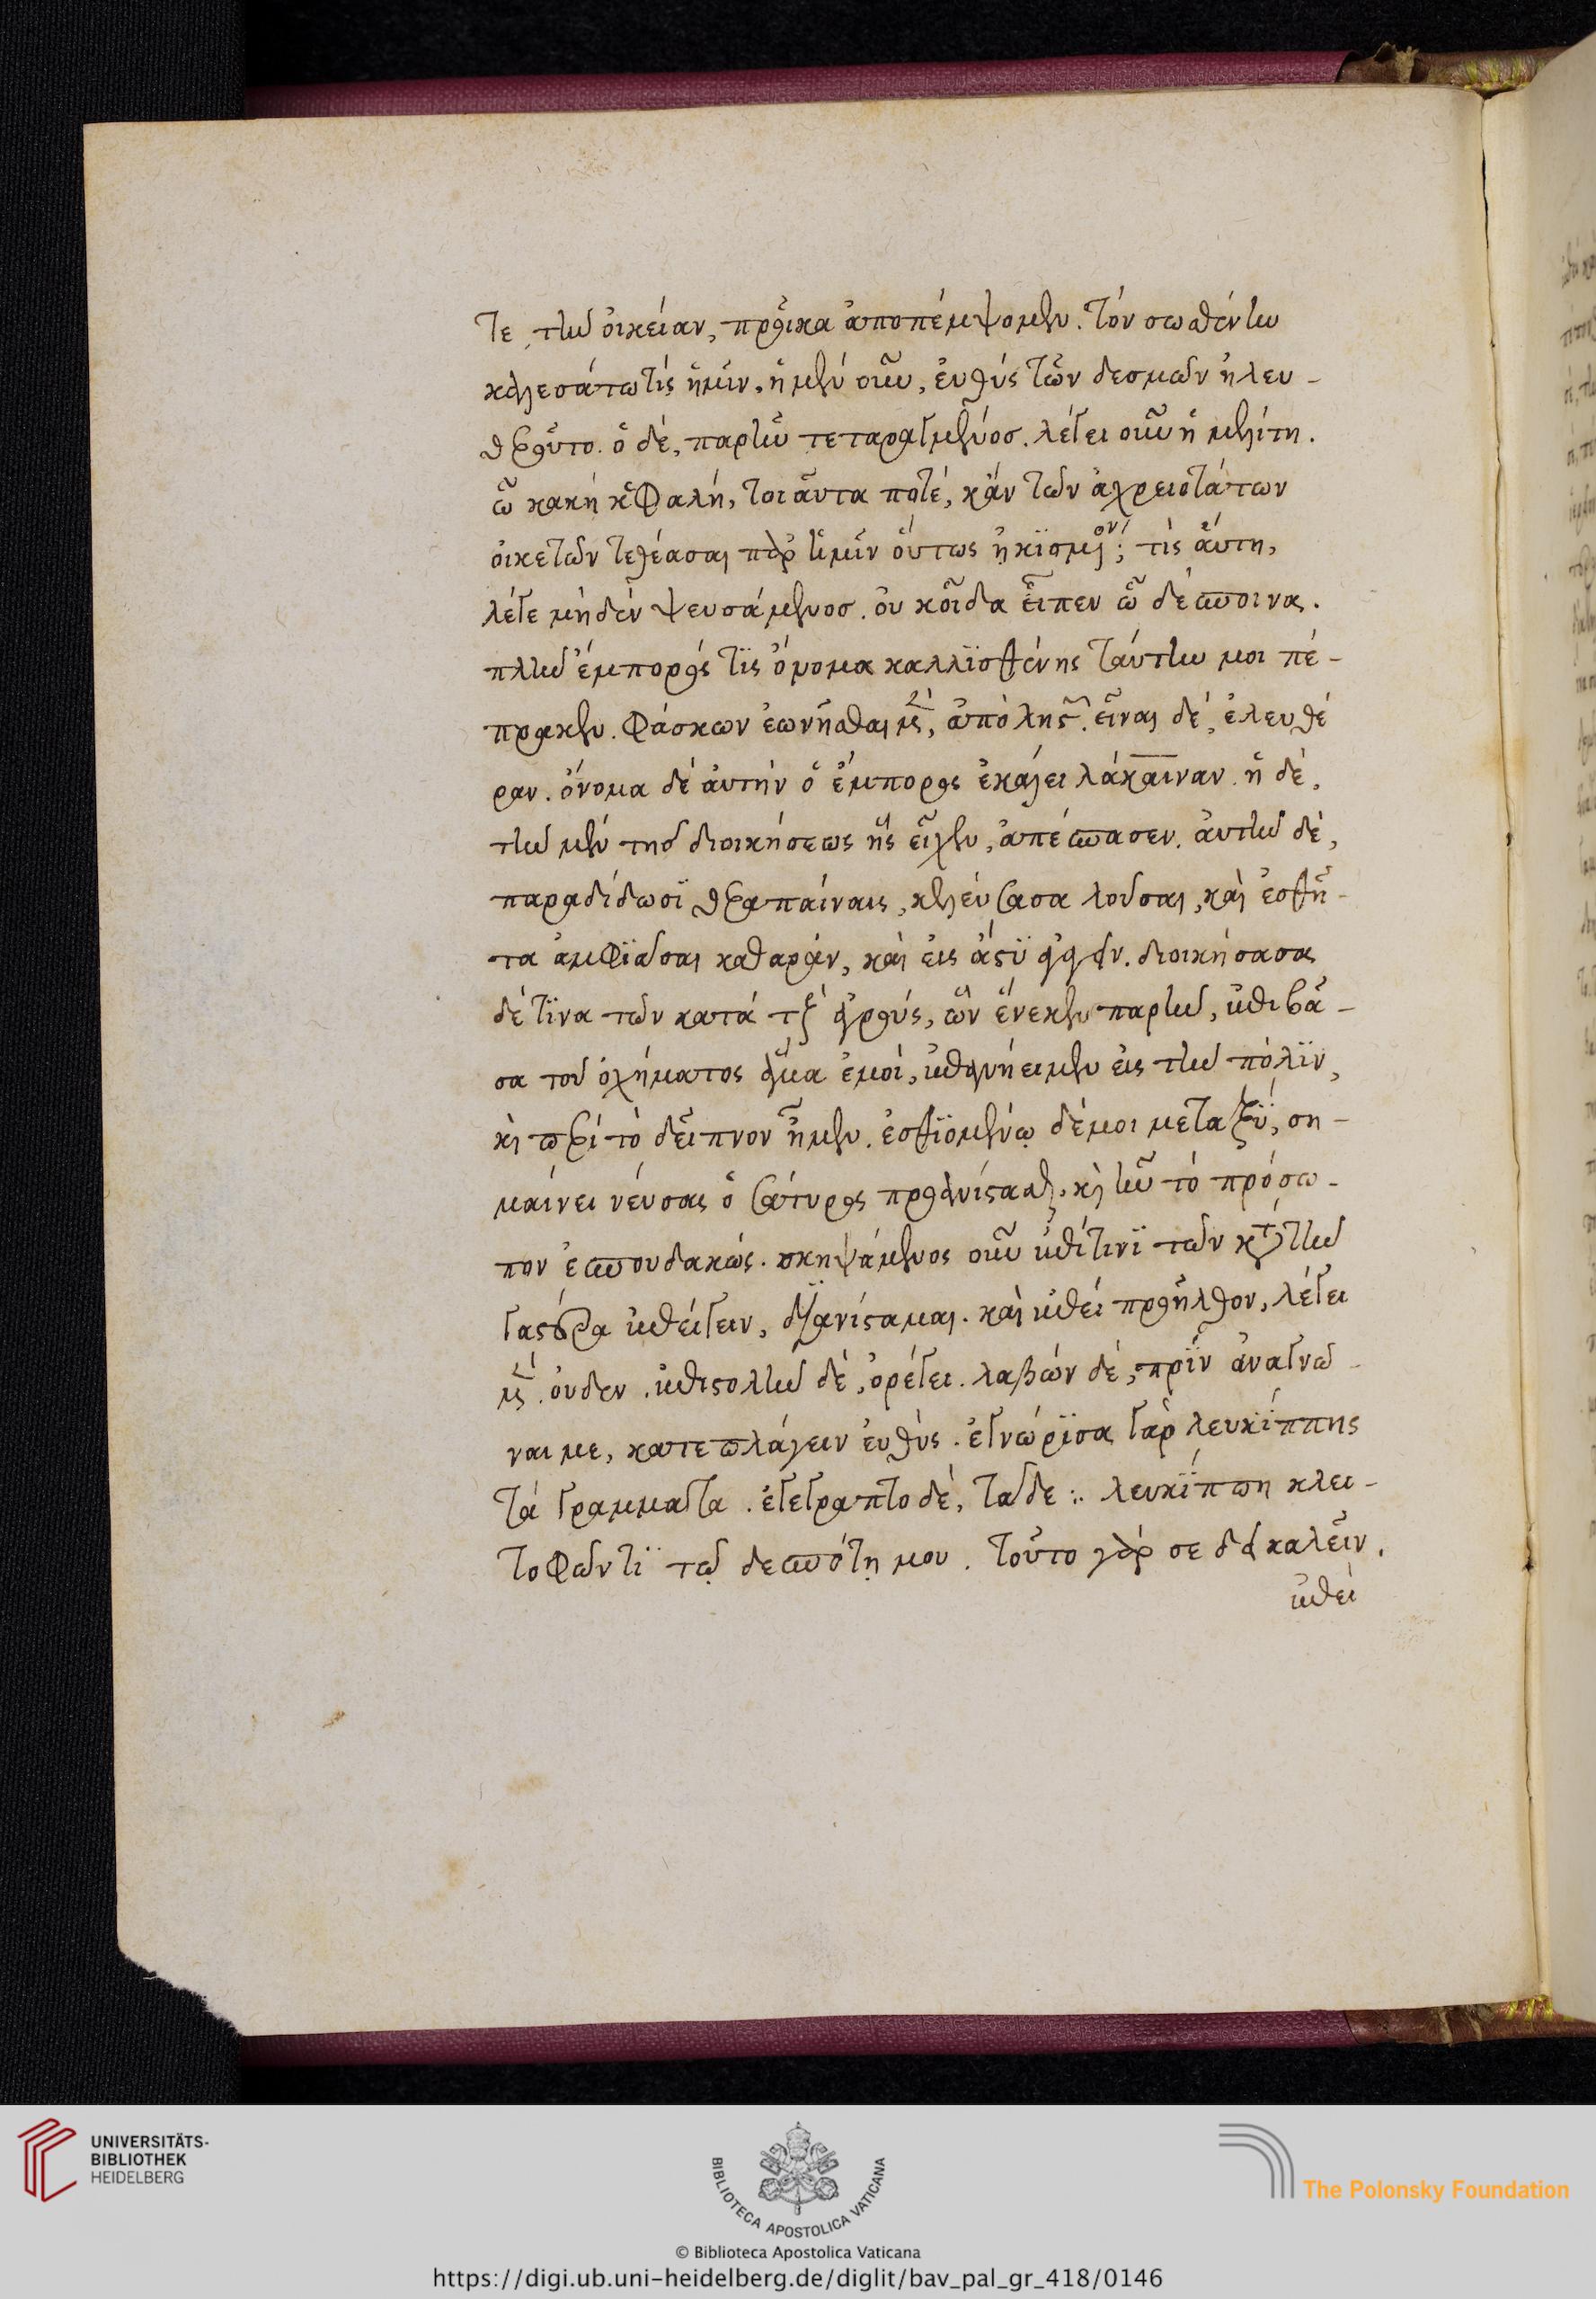 τε τὴν ὀικείαν, προῖκα ἀποπέμψομεν. τόν σωθέντην
καλεσάτω τίς ἡμῖν. ἡ μὲν οὖν, ἐυθύς τῶν δεσμῶν ἠλευ-
θεροῦτο. ὁ δέ, παρῆν τεταραγμένος. λέγει οὖν ἡ μελίτη.
ὦ κακή κεφαλή, τοιαῦτα ποτέ, κἂν τῶν ἀχρειοτάτων
ὀικετῶν τεθέασαι παρ ἡμῖν ὅυτως ἠκϊσμένον; τίς ἅυτη,
λέγε μηδέν ψευσάμενος. ὀυκ οἶδα εἶπεν ὦ δέσποινα.
πλὴν ἔμπορός τϊς ὄνομα καλλϊσθένης ταύτην μοι πέ-
πρακεν. φάσκων ἐωνῆσθαι μὲν, ἀπὸ ληστῶν. εἶναι δέ, ἐλευθέ
ραν. ὄνομα δέ ἀυτήν ὁ ἔμπορος ἐκάλει λάκαιναν. ἡ δέ,
τὴν μὲν τῆς διοικήσεως ἧς εἶχεν, ἀπέπασεν. ἀυτὴν δέ,
παραδίδωσϊ θεραπαίναις, κελεύσασα λοῦσαι, καὶ ἐσθῆ-
τα ἀμφϊάσαι καθαράν, καὶ εἰς ἄστϋ ἀγαγεῖν. διοικήσασα
δέ τϊνα τῶν κατά τοὺς ἀγρούς, ὧν ἕνεκεν παρῆν, ἐπιβᾶ-
σα τοῦ ὀχήματος ἅμα ἐμοί, ἐπανήειμεν εἰς τὴν πόλϊν,
καὶ περί τὸ δεῖπνον ἦμεν. ἐσθϊομένῳ δέ μοι μεταξϋ, ση-
μαίνει νεύσας ὁ σάτυρος προανίστασθαι. καὶ ἦν τὸ πρόσω-
πον ἐσπουδακώς. σκηψάμενος οὖν ἐπί τινϊ τῶν κατὰ τὴν
γαστέρα ἐπείγειν, διανίσταμαι. καὶ ἐπεί προῆλθον, λέγει
μὲν οὐδεν. ἐπιστολὴν δέ, ὀρέγει. λαβών δέ, πρϊν ἀναγνῶ-
ναι με, κατεπλάγειν ἐυθύς. ἐγνώρϊσα γάρ λευκϊππης
τά γραμματα. ἐγέγραπτο δέ, ταδε :. λευκϊππη κλει-
τοφῶντϊ τῷ δεσπότῃ μου. τοῦτο γάρ σε δεῖ καλεῖν,
ἐπεί
UNIVERSITÄTS-
BIBLIOTHEK
HEIDELBERG
BIBLIOTECA APOSTOLICA VATICANA
The Polonsky Foundation
© Biblioteca Apostolica Vaticana
https://digi.ub.uni-heidelberg.de/diglit/bav_pal_gr_418/0146